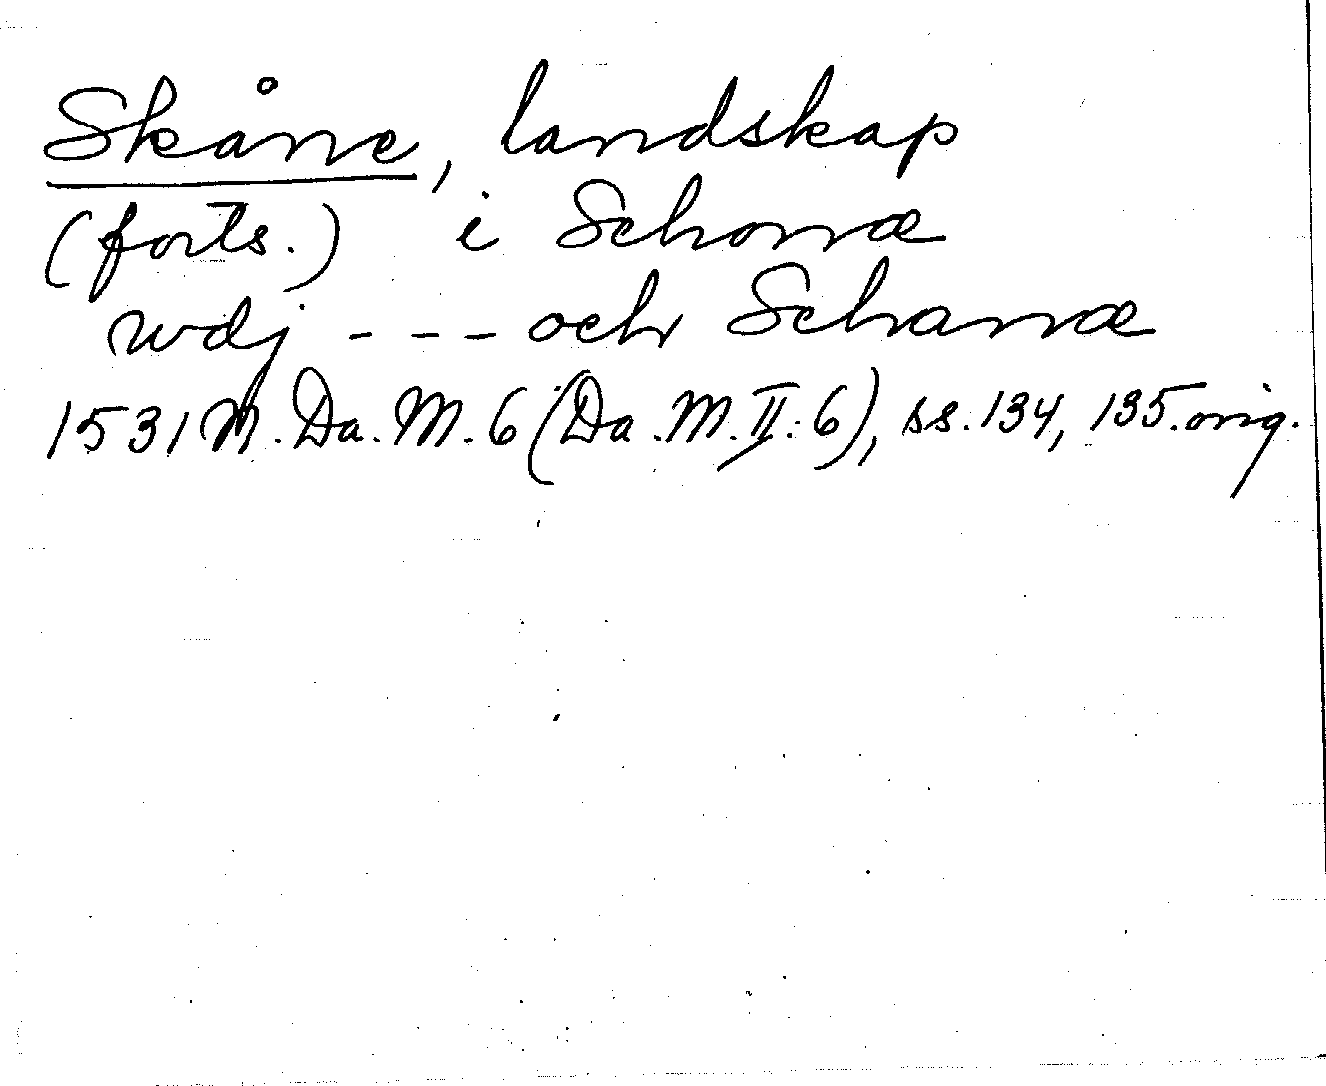 Skåne, landskap
(forts.) i Schonæ
wdj --- och Schanæ
1531 M. Da. M. 6 (Da. M. II: 6), ss. 134, 135. orig.